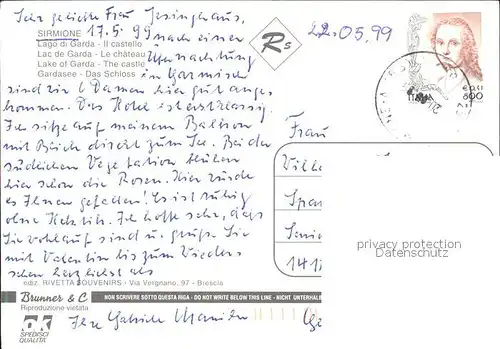 Sehr geliebte Frau Jesinghaus,
22.05.99
SIRMIONE 17.5.99 nach einer
Lago di Garda - Il castello
Lac de Garda - Le château
Übernachtung
Lake of Garda - The castle
in Garmisch
Gardasee - Das Schloss
sind wir 6 Damen hier gut ange-
kommen. Das Hotel ist erstklassig.
Ich sitze auf meinem Balkon
mit Blick direkt zum See. Bei der
südlichen Vegetation blühen
hier schon die Rosen. Hier würde
es Ihnen gefallen! Es ist ruhig
ohne Hektik. Ich hoffe sehr, daß
Sie wohlauf sind u. grüße Sie
mit Valentin bis zum Wieder-
sehen herzlichst als
Ihre Gabriele
Rs
ITALIA
€ 0,41
800
Frau
Vill
Span
Seni
141
privacy protection
Datenschutz
ediz. RIVETTA SOUVENIRS - Via Vergnano, 97 - Brescia
Brunner & C
NON SCRIVERE SOTTO QUESTA RIGA - DO NOT WRITE BELOW THIS LINE - NICHT UNTERHALB
Riproduzione vietata
ok
SPEDISCI
QUALITÀ